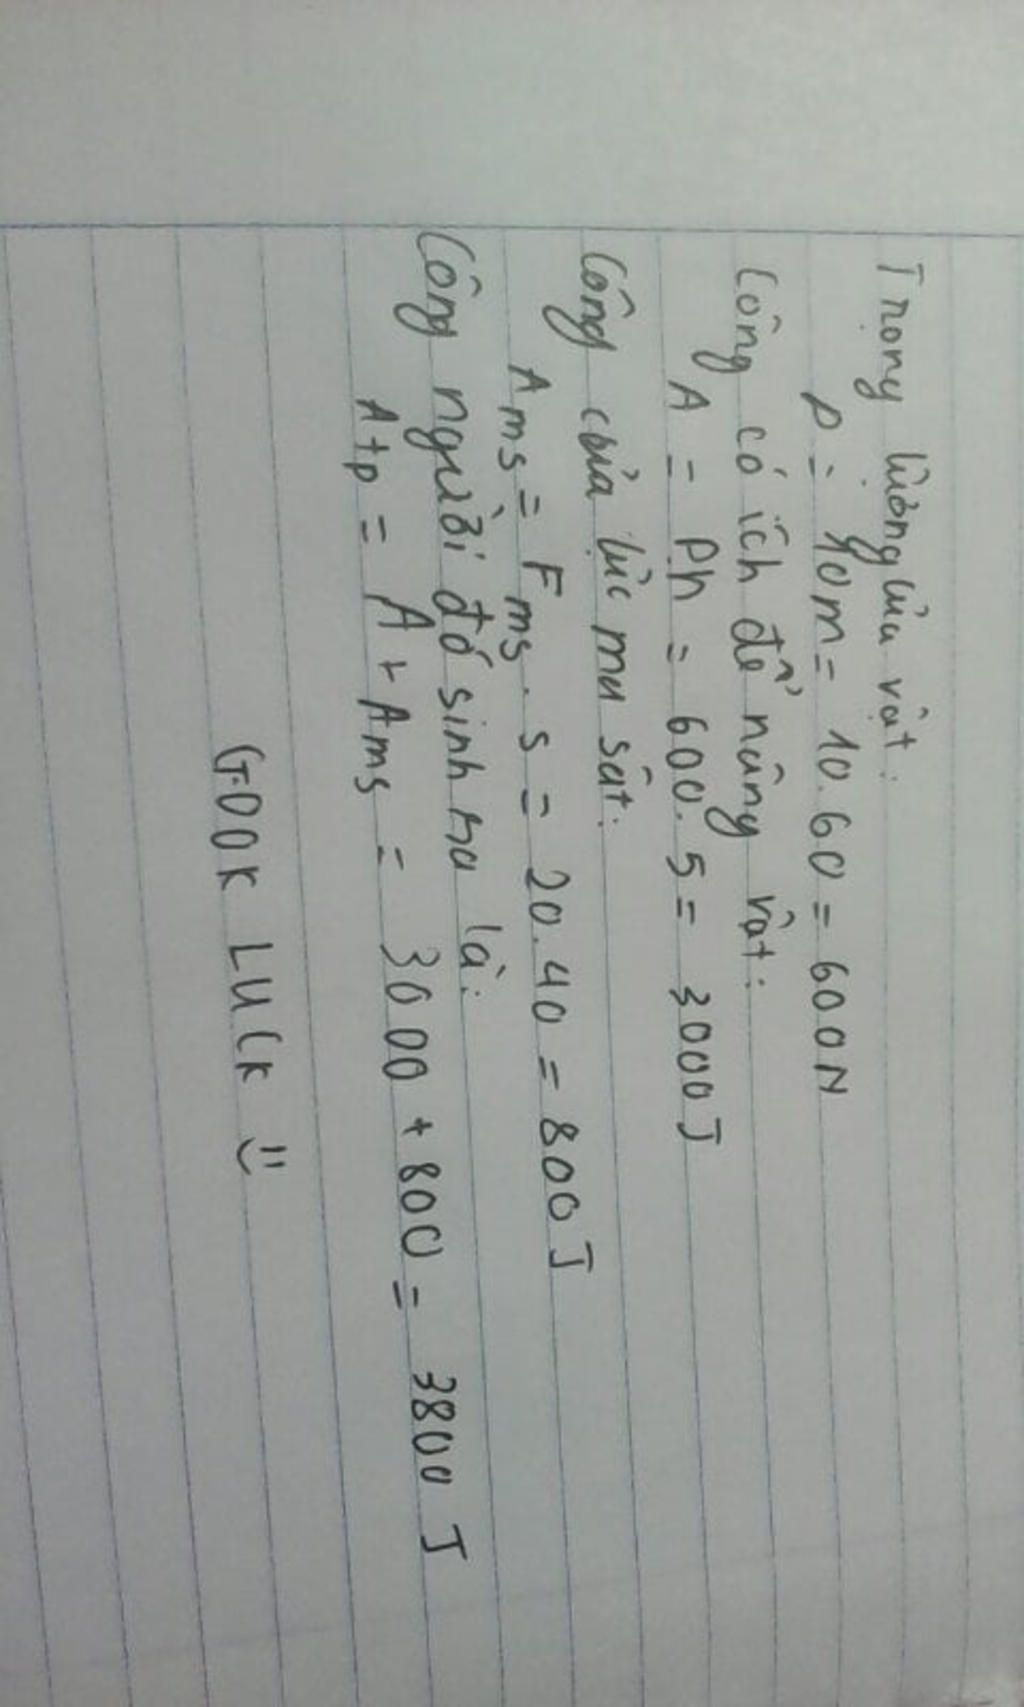 Trọng lượng của vật:
P = 10m = 10.60 = 600N
Công có ích để nâng vật:
A = Ph = 600.5 = 3000J
Công của lực ma sát:
Ams = Fms.s = 20.40 = 800J
Công người đó sinh ra là:
Atp = A + Ams = 3000 + 800 = 3800 J
GOOK LUCK